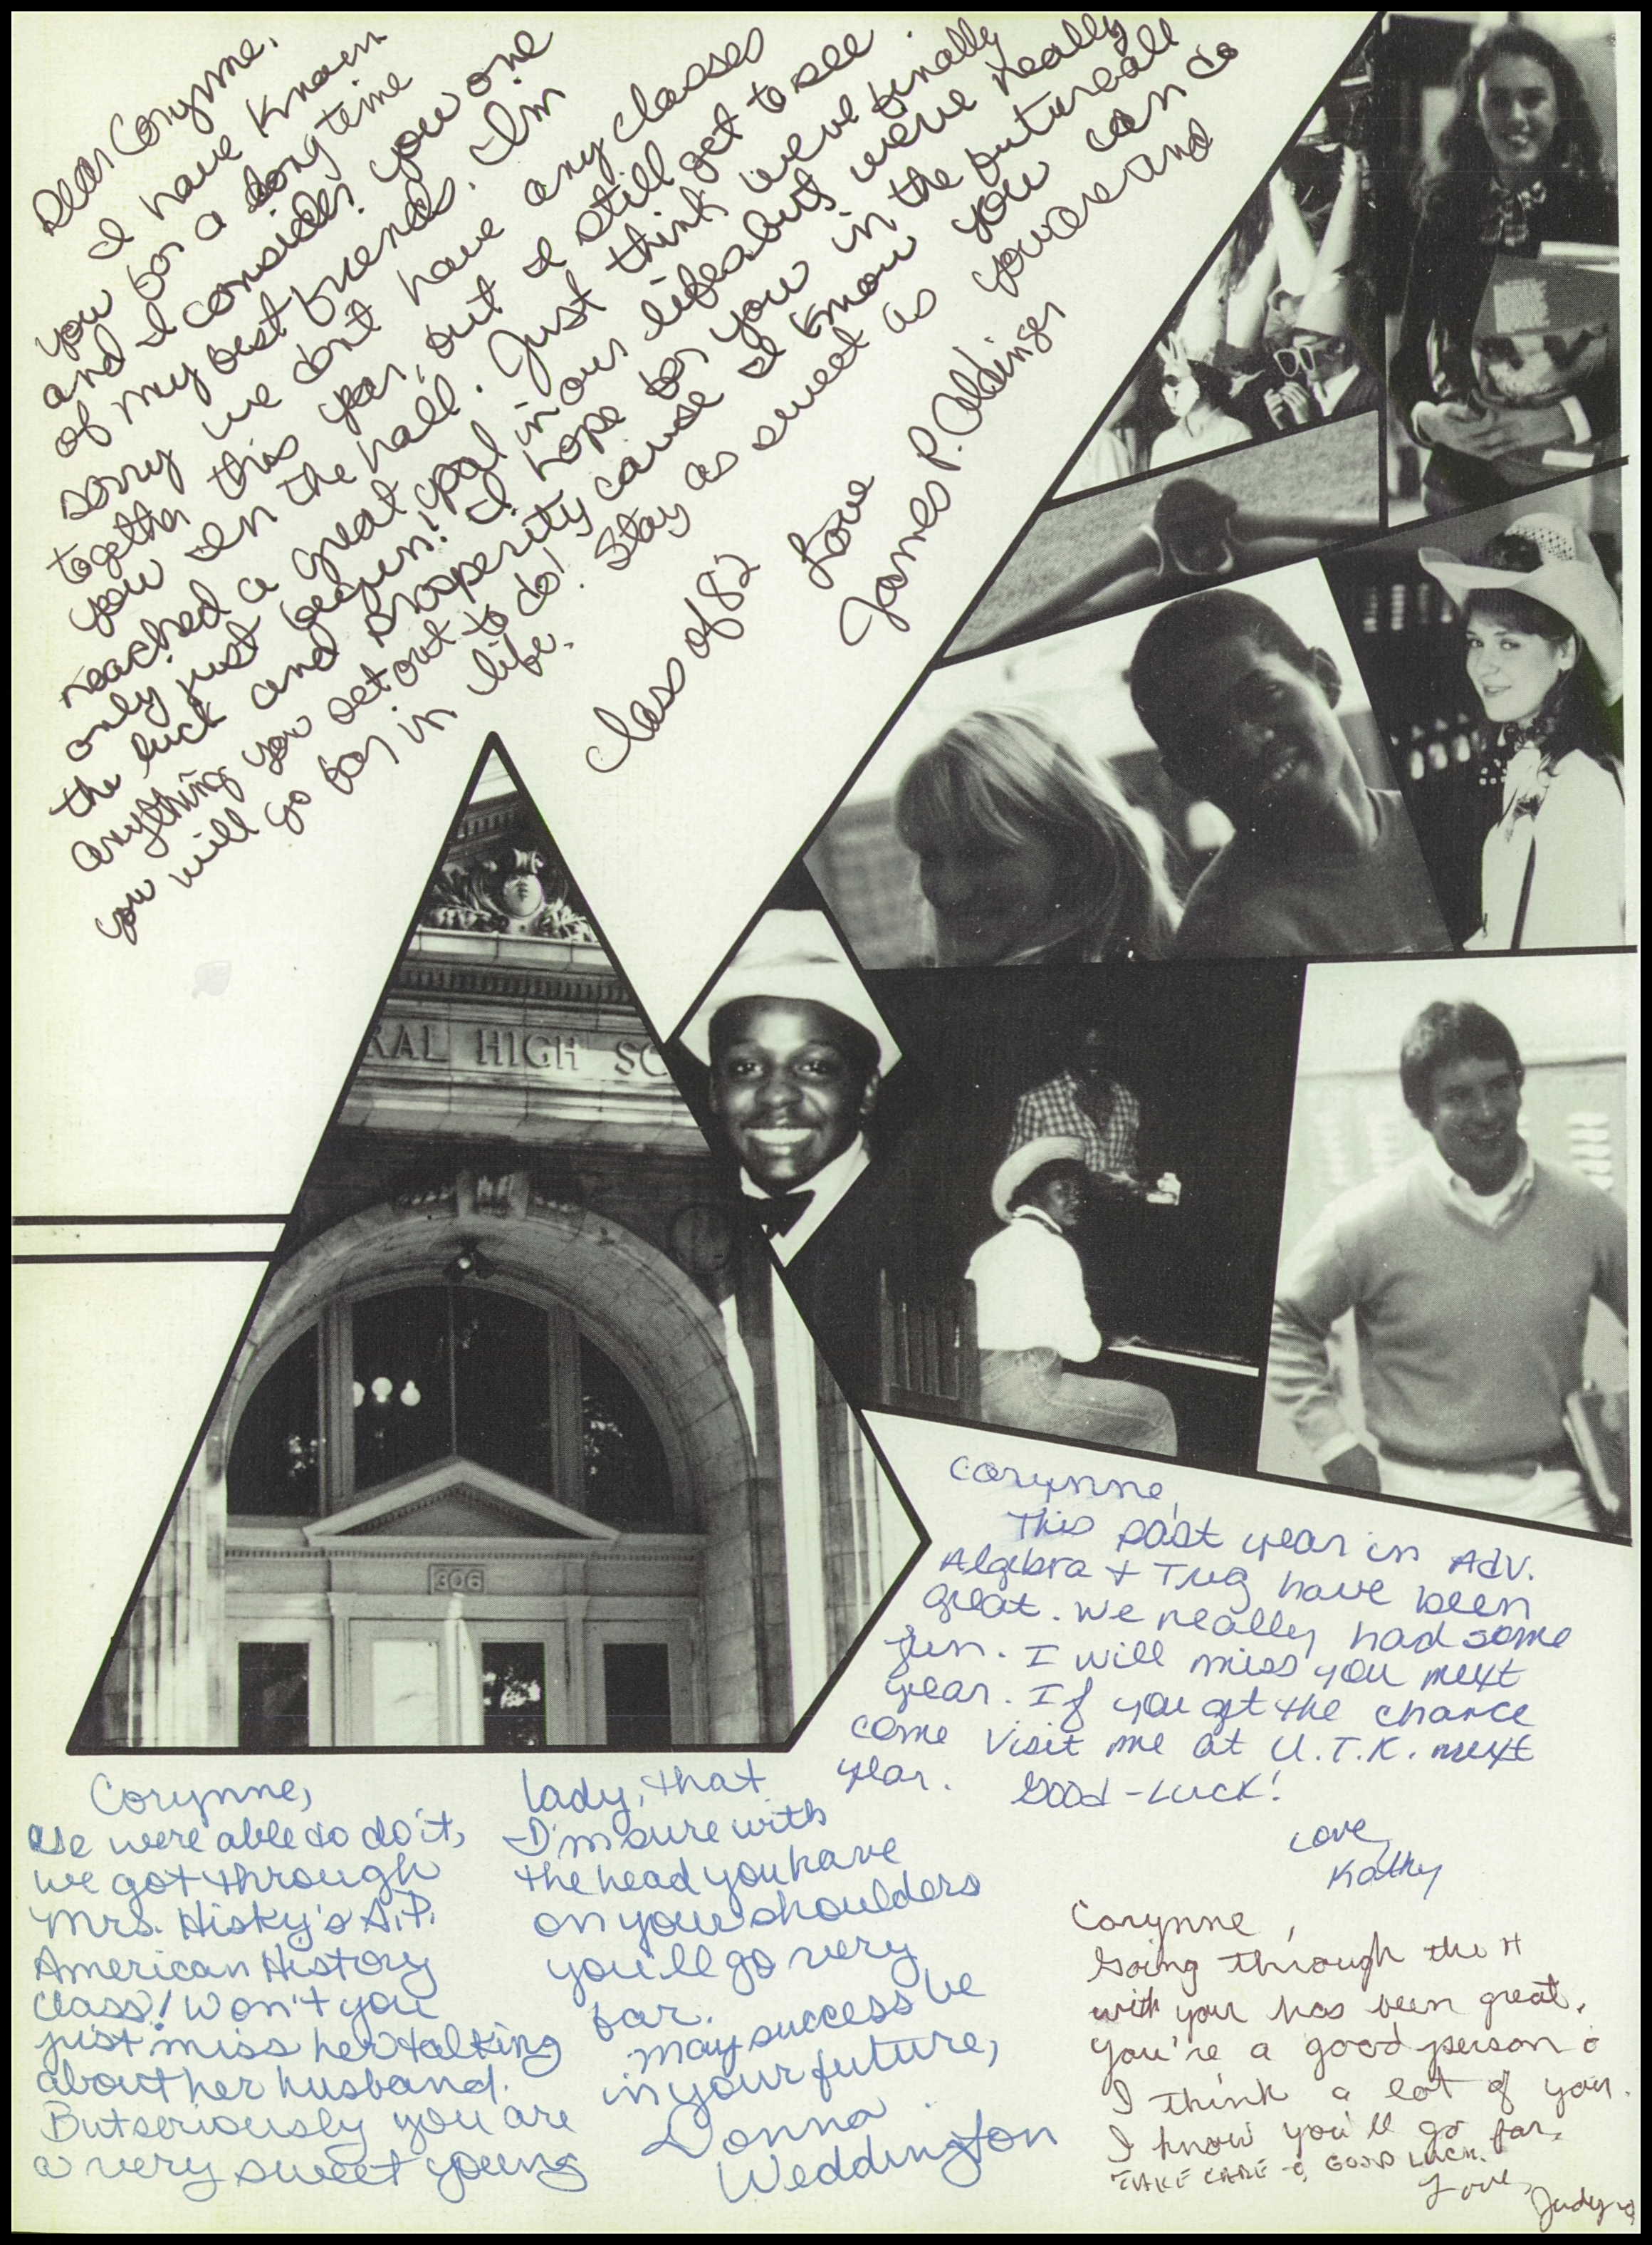 Dear Corynne,
I have known
you for a long time
and I consider you one
of my best friends. I'm
sorry we dont have any classes
together this year, but I still get to see
you in the hall. Just think we've finally
reached a great goal in our lifes but we've really
only just begun! I hope for you in the future all
the luck and prosperity cause I know you can do
anything you set out to do! Stay as sweet as you are and
you will go far in life.
Class of 82
Love
James P. Aldinger
RAL HIGH SC
306
Corynne,
This past year in Adv.
Algebra + Trig have been
great. We really had some
fun. I will miss you next
year. If you get the chance
come visit me at U.T.K. next
year. Good-Luck!
Love,
Kathy
Corynne,
We were able to do it,
we got through
Mrs. Hisky's A.P.
American History
class! Won't you
just miss her talking
about her husband.
But seriously you are
a very sweet young
lady, that
I'm sure with
the head you have
on your shoulders
you'll go very
far.
May success be
in your future,
Donna
Weddington
Corynne,
Going through the H
with you has been great.
You're a good person &
I think a lot of you.
I know you'll go far.
TAKE CARE & GOOD LUCK.
Love,
Judy